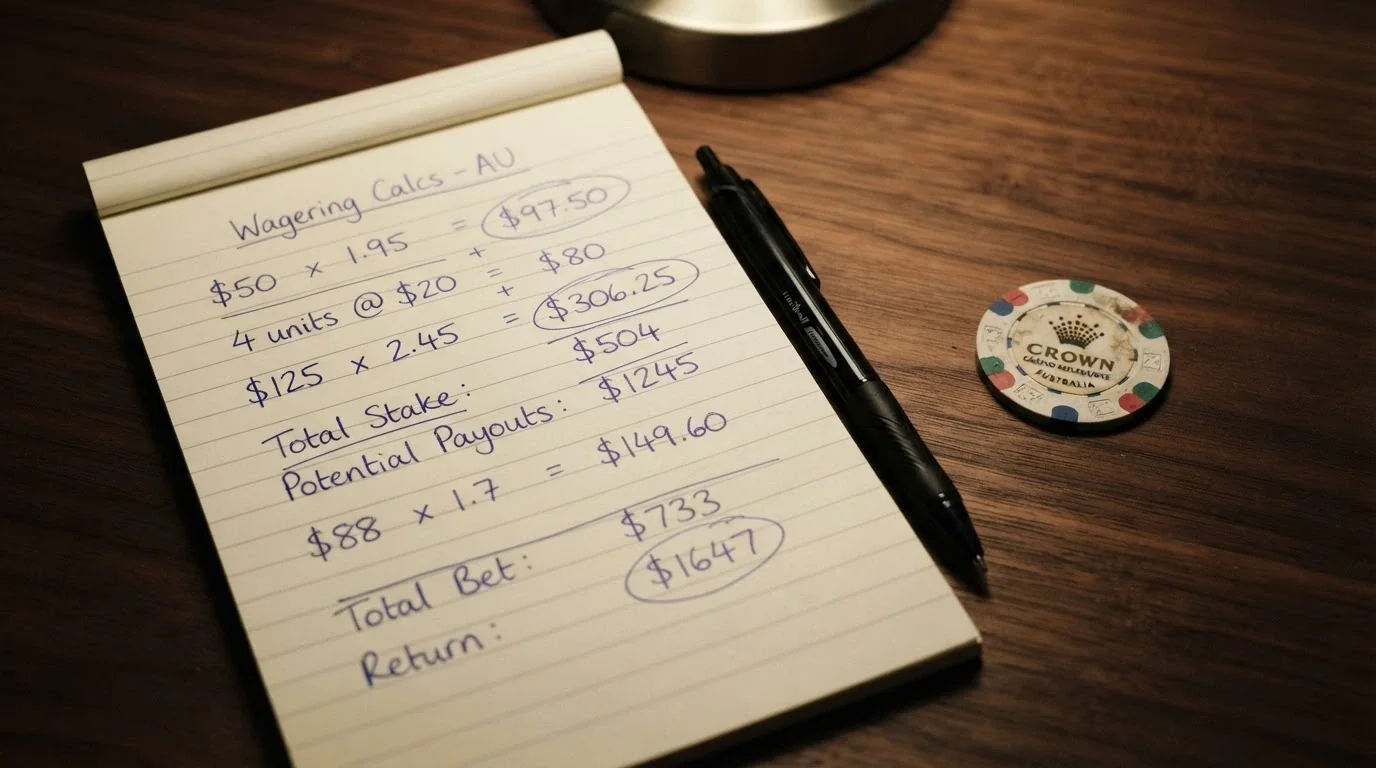 Wagering Calcs - AU
$50 x 1.95 = $97.50
+
4 units @ $20 = $80
+
$125 x 2.45 = $306.25
Total Stake: $504
Potential Payouts: $1245
$88 x 1.7 = $149.60
Total Bet: $733
Return: $1647
CROWN
AUSTRALIA